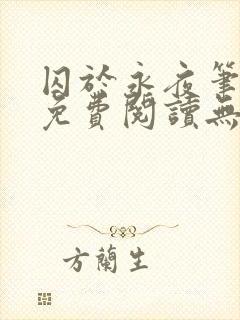 囚於永夜筆
免費閱讀無
方蘭生